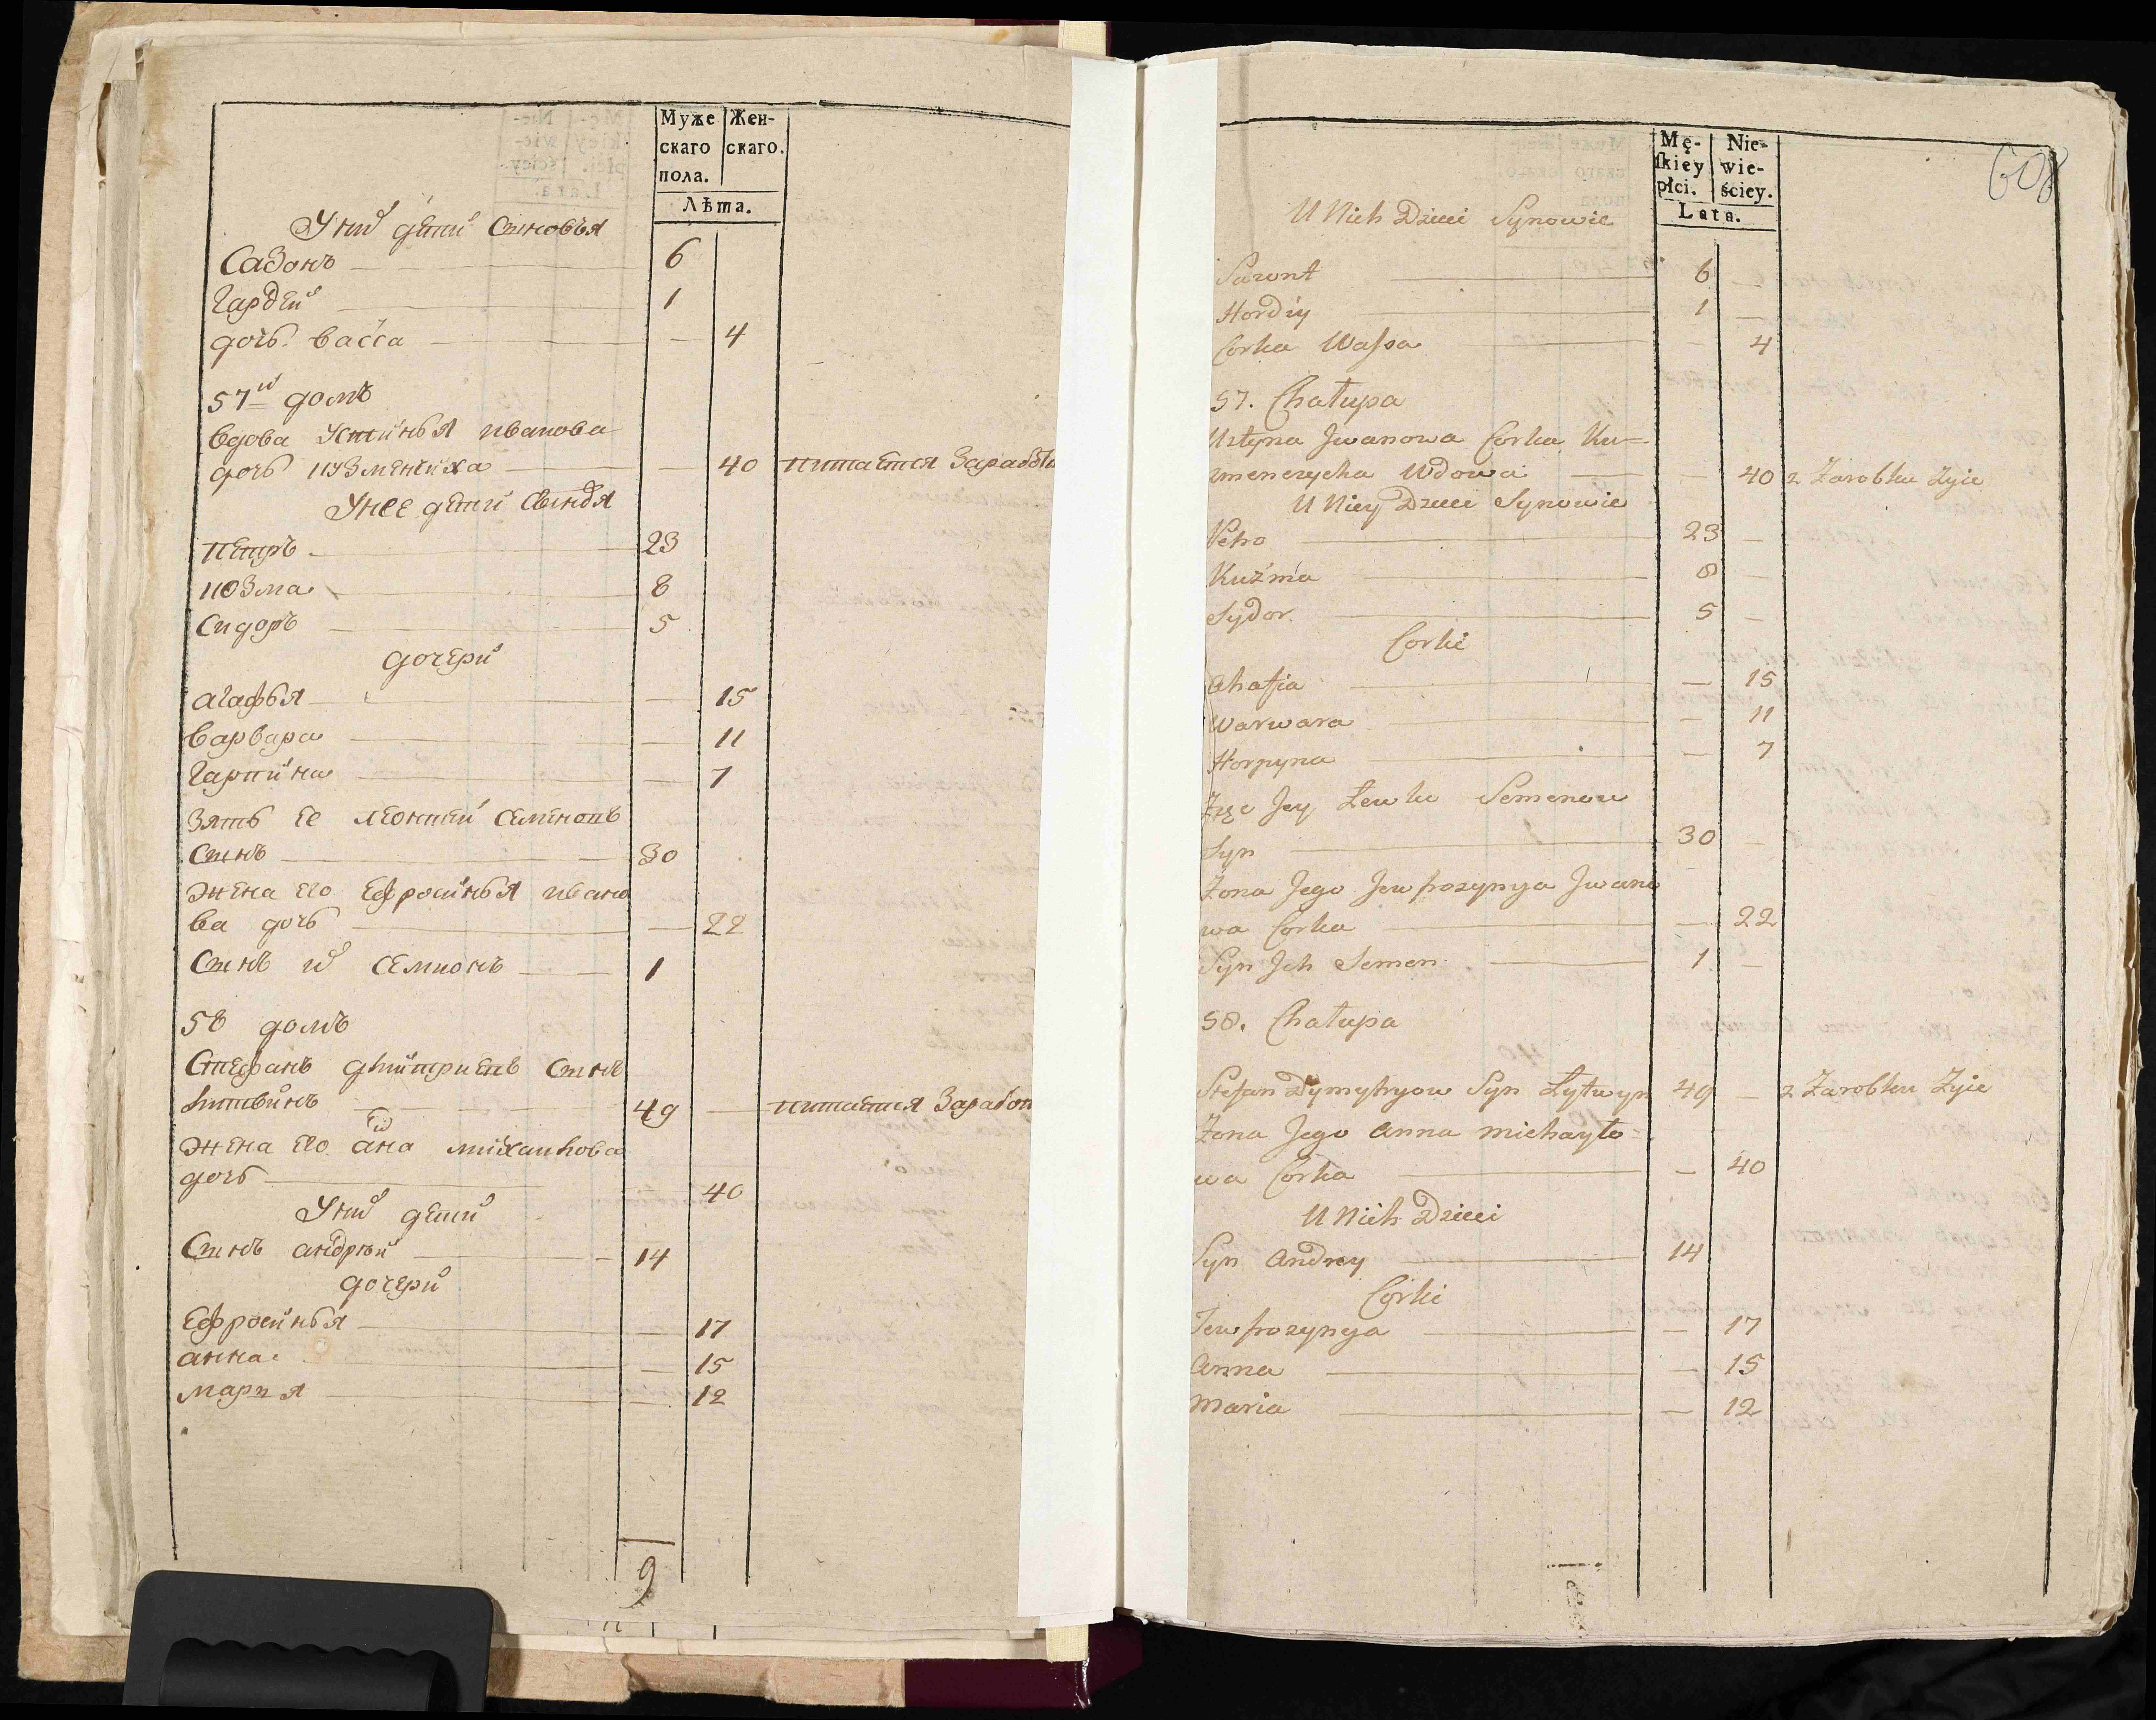 Муже
скаго
пола.
Жен-
скаго.
Лѣта.
У них дети Синовья
Сазонъ 6
Гардей 1
дочь васса — 4
57й домъ
вдова Устинья иванова
дочь кузменчиха 40 питается Заработ
У нее дети Синовья
петръ 23
козма 8
Сидоръ 5
дочери
агафья — 15
варвара — 11
Гарпина — 7
Зять ее леонтей Семеновъ
Синъ 30
Жена его Ефросинья ивано
ва дочь — 22
Синъ их Семионъ 1
58 домъ
Стефанъ дмитриевъ Синъ
Литвинъ 49 — питается Заработ
Жена его анна михайлова
дочь 40
У них дети
Синъ андрѣй 14
дочери
Ефросинья — 17
анна — 15
мария — 12
9
608
Mę-
ſkiey
płci.
Nie-
wie-
ściey.
Lata.
U Nich Dzieci Synowie
Sazont 6 —
Hordiy 1 —
Corka Waſsa — 4
57. Chałupa
Ustyna Jwanowa Corka Ku=
zmenczycha Wdowa — 40 z Zarobku Zyie
U Niey Dzieci Synowie
Petro 23 —
Kuźma 8 —
Sydor. 5 —
Corki
Ahafia — 15
Warwara — 11
Horpyna — 7
Zięc Jey Lewko Semenow
Syn 30 —
Zona Jego Jewfrozynya Jwano
wa Corka — 22
Syn Jch Semen 1 —
58. Chałupa
Stefan Dymytryow Syn Łytwyn 49 — z Zarobku Zyie
Zona Jego Anna Michayło=
wa Corka — 40
U Nich Dzieci
Syn Andrey 14
Corki
Jewfrozynya — 17
Anna — 15
Maria — 12